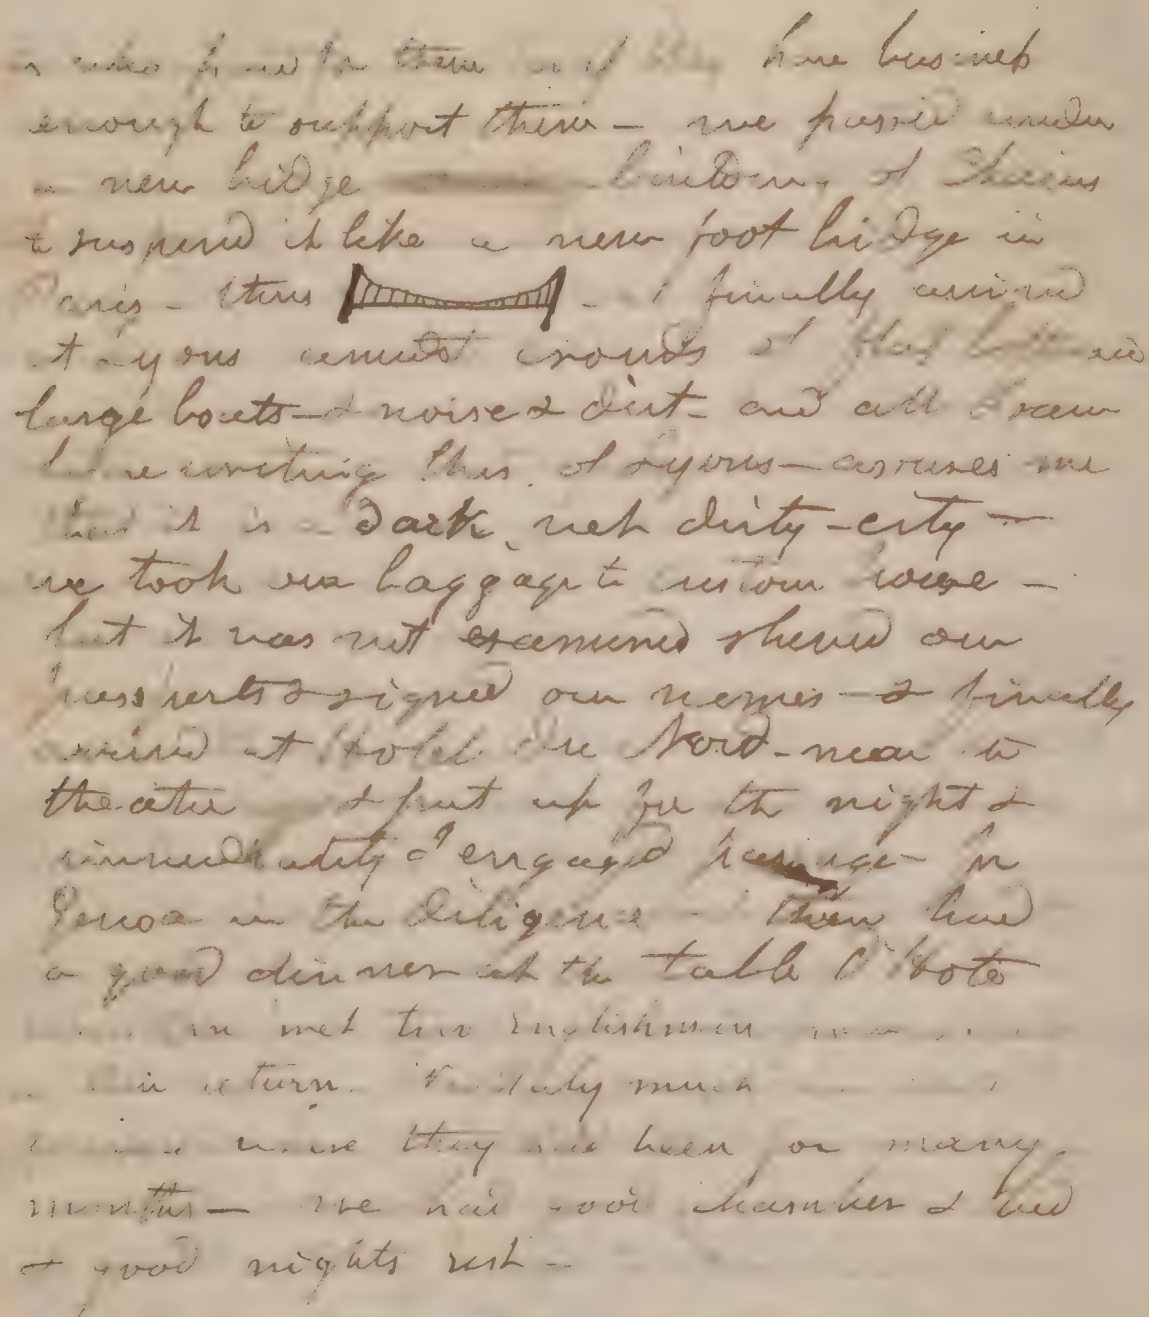 them have business
enough to support them — we passed under
a new bridge building of Chains
to suspend it like a new foot bridge in
Paris — thus — & finally arrived
at Lyons amidst crowds of flat bottomed
large boats — & noise & dirt — and all I saw
writing this of Lyons — assures me
that it is a dark, wet dirty — city —
we took our baggage to custom house —
but it was not examined shewed our
passports & signed our names — & finally
arrived at Hotel du Nord — near to
theatre & put up for the night &
immediately I engaged passage for
Genoa in the Diligence — then had
a good dinner at the table D'Hote
met two Englishmen
return Italy much
they had been for many
months — we had good chamber & bed
& good nights rest —